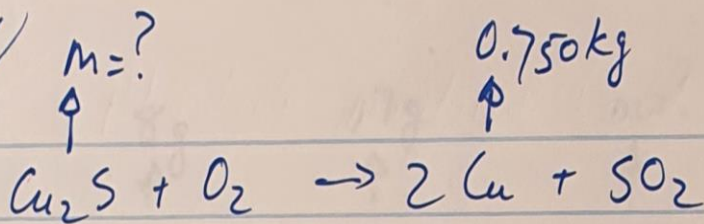 m=? 0.750kg
Cu₂S + O₂ → 2 Cu + SO₂